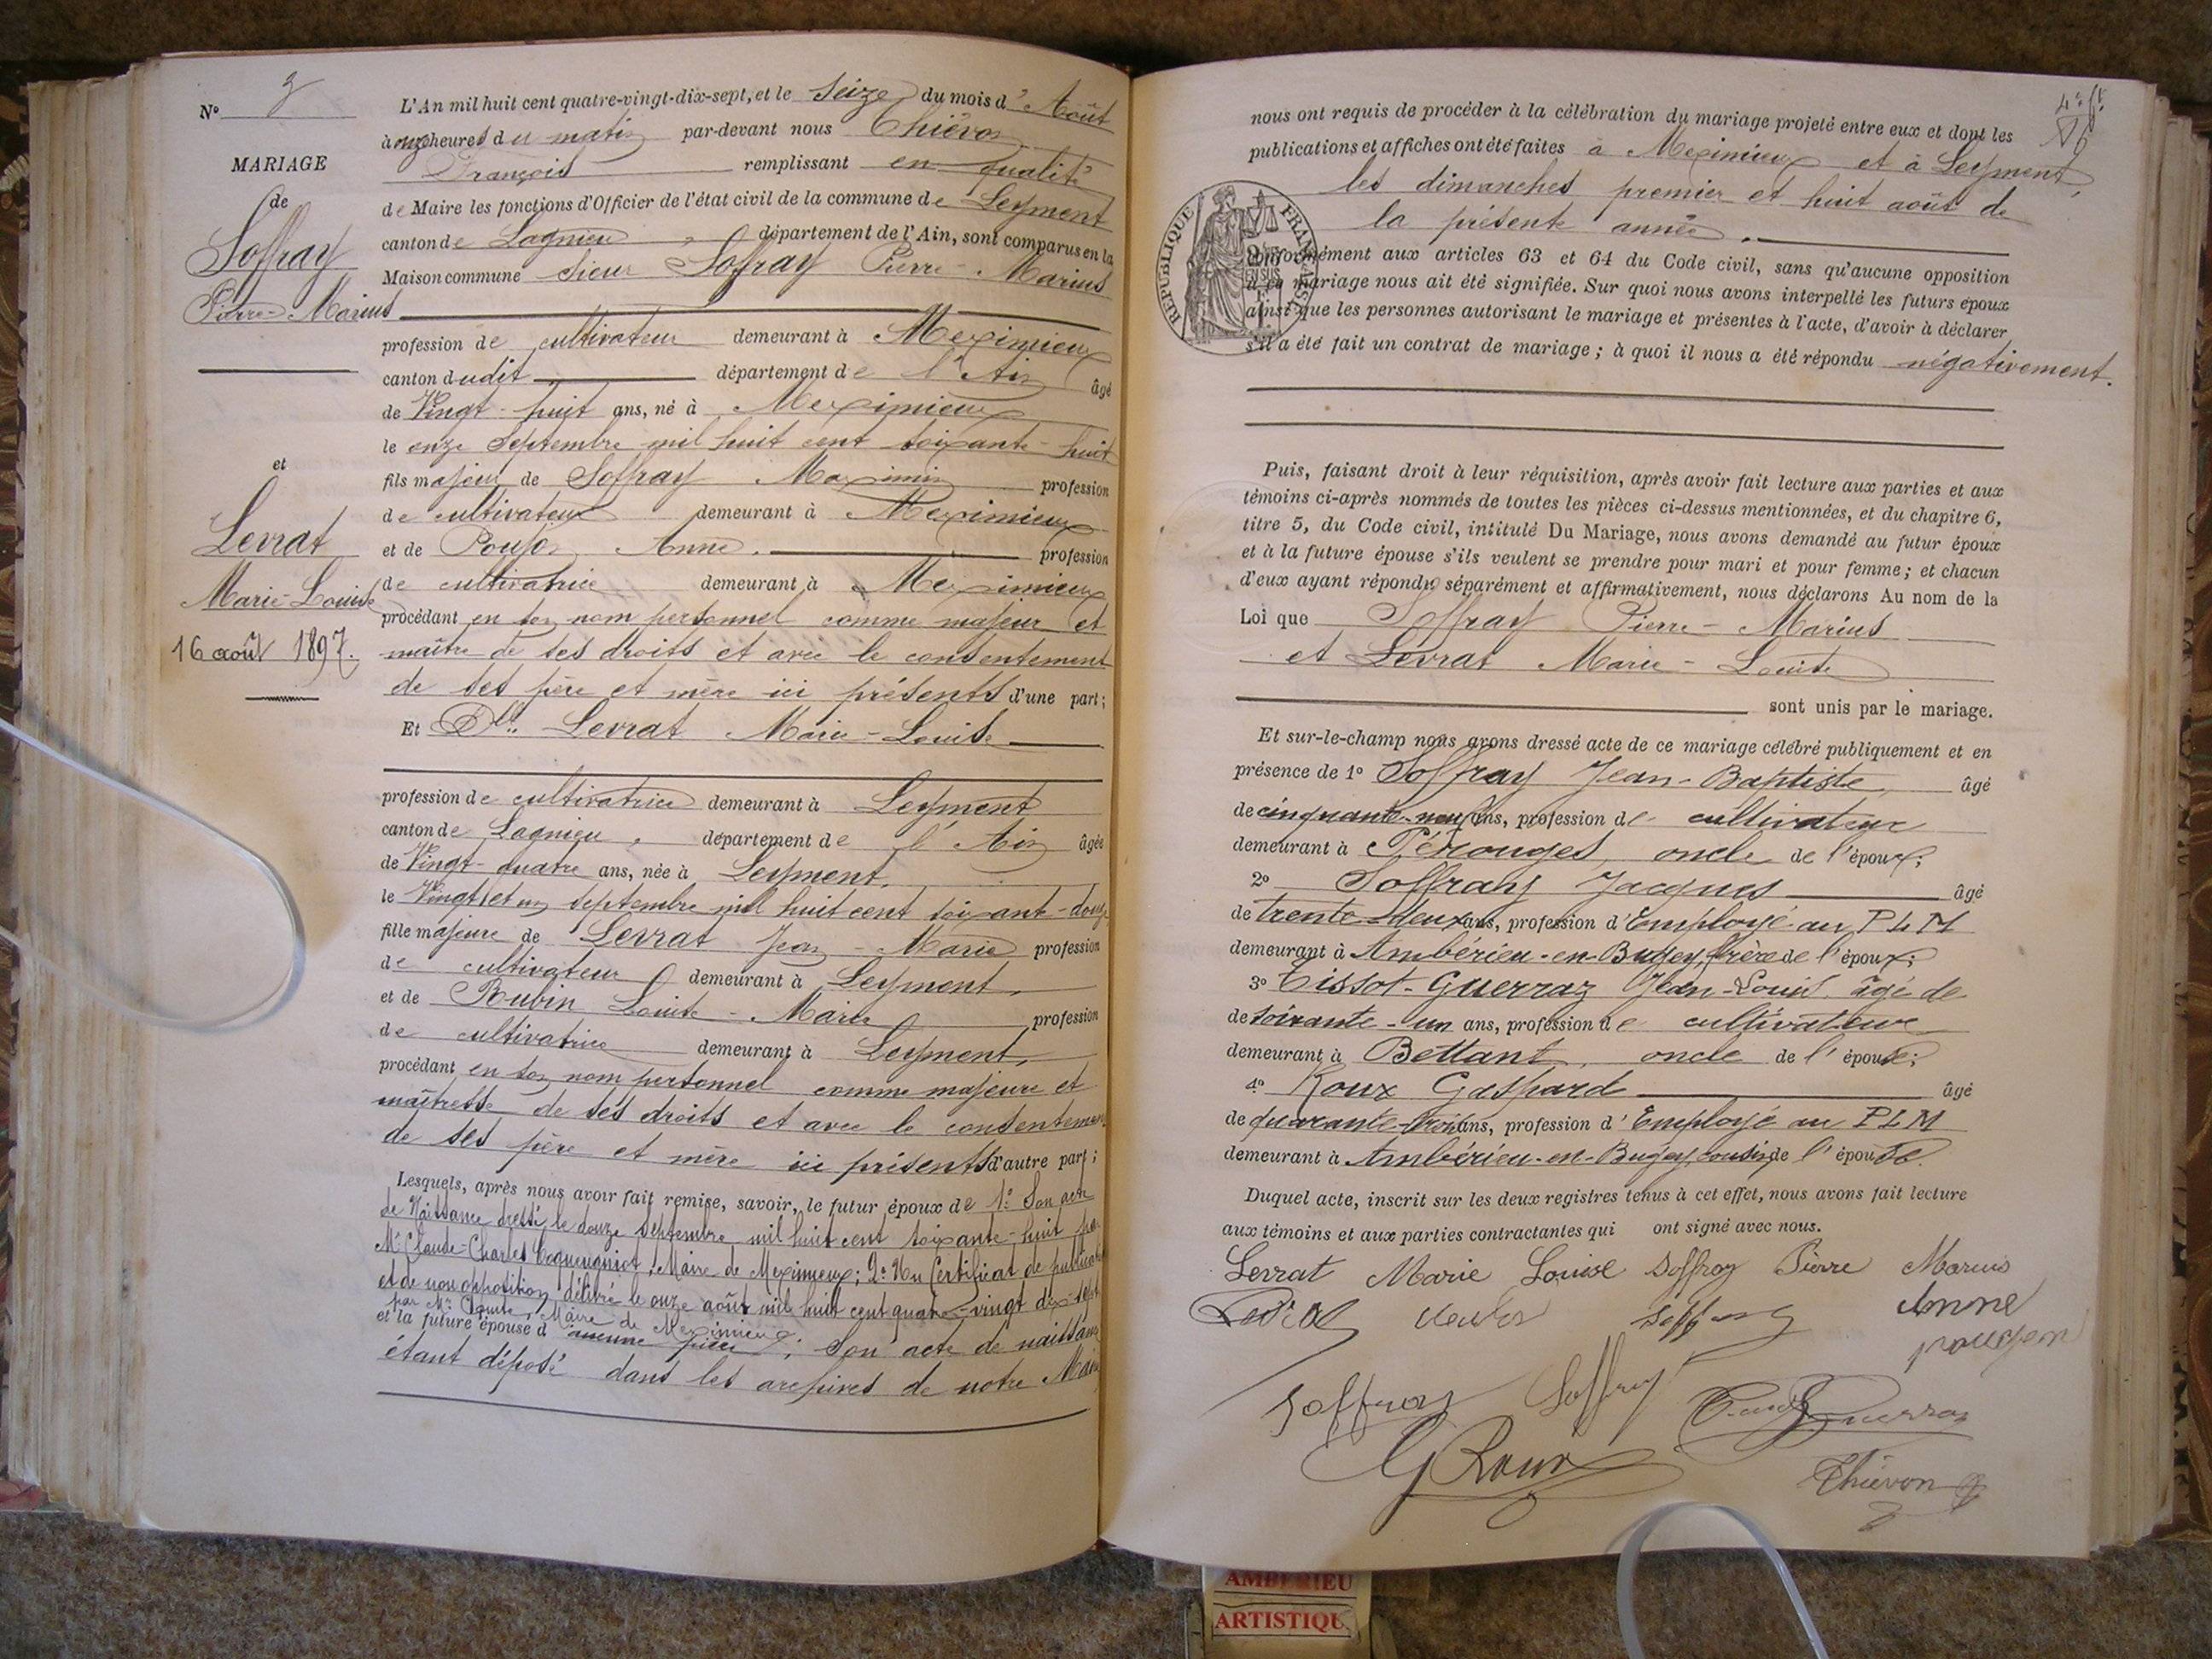 No 3
MARIAGE
de
Soffray
Pierre-Marius
et
Levrat
Marie-Louise
16 août 1897.
L'An mil huit cent quatre-vingt-dix-sept, et le Seize du mois d'Août
à onze heures du matin par-devant nous Thiévon
François remplissant en qualité
de Maire les fonctions d'Officier de l'état civil de la commune de Leyment
canton de Lagnieu, département de l'Ain, sont comparus en la
Maison commune Sieur Soffray Pierre-Marius
profession de cultivateur demeurant à Meximieux
canton dudit département de l'Ain âgé
de Vingt-huit ans, né à Meximieux
le onze Septembre mil huit cent soixante-huit
fils majeur de Soffray Maximin profession
de cultivateur demeurant à Meximieux
et de Anne. profession
de cultivatrice demeurant à Meximieux
procédant en son nom personnel comme majeur et
maître de ses droits et avec le consentement
de ses père et mère ici présents d'une part;
Et Dlle. Levrat Marie-Louise
profession de cultivatrice demeurant à Leyment
canton de Lagnieu, département de l'Ain âgée
de Vingt-quatre ans, née à Leyment.
le Vingt et un septembre mil huit cent soixante-douze
fille majeure de Levrat Jean-Marie profession
de cultivateur demeurant à Leyment,
et de Rubin Louise-Marie profession
de cultivatrice demeurant à Leyment,
procédant en son nom personnel comme majeure et
maîtresse de ses droits et avec le consentement
de ses père et mère ici présents d'autre part;
Lesquels, après nous avoir fait remise, savoir, le futur époux de 1o Son acte
de Naissance dressé le douze Septembre mil huit cent soixante-huit par
Mr Claude-Charles Maire de Meximieux; 2o Un Certificat de publication
et de non opposition délivré le onze août mil huit cent quatre-vingt dix-sept
par Mr Maire de Meximieux
et la future épouse d'aucune pièce; Son acte de naissance
étant déposé dans les archives de notre Mairie
4e ft
nous ont requis de procéder à la célébration du mariage projeté entre eux et dont les
publications et affiches ont été faites à Meximieux et à Leyment,
les dimanches premier et huit août de
la présente année.
RÉPUBLIQUE FRANÇAISE
EN SUS
Conformément aux articles 63 et 64 du Code civil, sans qu'aucune opposition
à ce mariage nous ait été signifiée. Sur quoi nous avons interpellé les futurs époux
ainsi que les personnes autorisant le mariage et présentes à l'acte, d'avoir à déclarer
s'il a été fait un contrat de mariage; à quoi il nous a été répondu négativement.
Puis, faisant droit à leur réquisition, après avoir fait lecture aux parties et aux
témoins ci-après nommés de toutes les pièces ci-dessus mentionnées, et du chapitre 6,
titre 5, du Code civil, intitulé Du Mariage, nous avons demandé au futur époux
et à la future épouse s'ils veulent se prendre pour mari et pour femme; et chacun
d'eux ayant répondu séparément et affirmativement, nous déclarons Au nom de la
Loi que Soffray Pierre-Marius
et Levrat Marie-Louise
sont unis par le mariage.
Et sur-le-champ nous avons dressé acte de ce mariage célébré publiquement et en
présence de 1o Soffray Jean-Baptiste, âgé
de cinquante-neuf ans, profession de cultivateur
demeurant à Pérouges, oncle de l'époux;
2o Soffray Jacques âgé
de trente-deux ans, profession d'Employé au PLM
demeurant à Ambérieu-en-Bugey, frère de l'époux;
3o Tissot-Guerraz Jean-Louis âgé de
de soixante-un ans, profession de cultivateur
demeurant à Bettant, oncle de l'épouse;
4o Roux Gaspard âgé
de quarante-trois ans, profession d'Employé au PLM
demeurant à Ambérieu-en-Bugey, cousin de l'épouse.
Duquel acte, inscrit sur les deux registres tenus à cet effet, nous avons fait lecture
aux témoins et aux parties contractantes qui ont signé avec nous.
Levrat Marie Louise Soffray Pierre Marius
Soffray Anne
Soffray Soffray Guerraz
G Roux Thiévon
AMBERIEU
ARTISTIQU